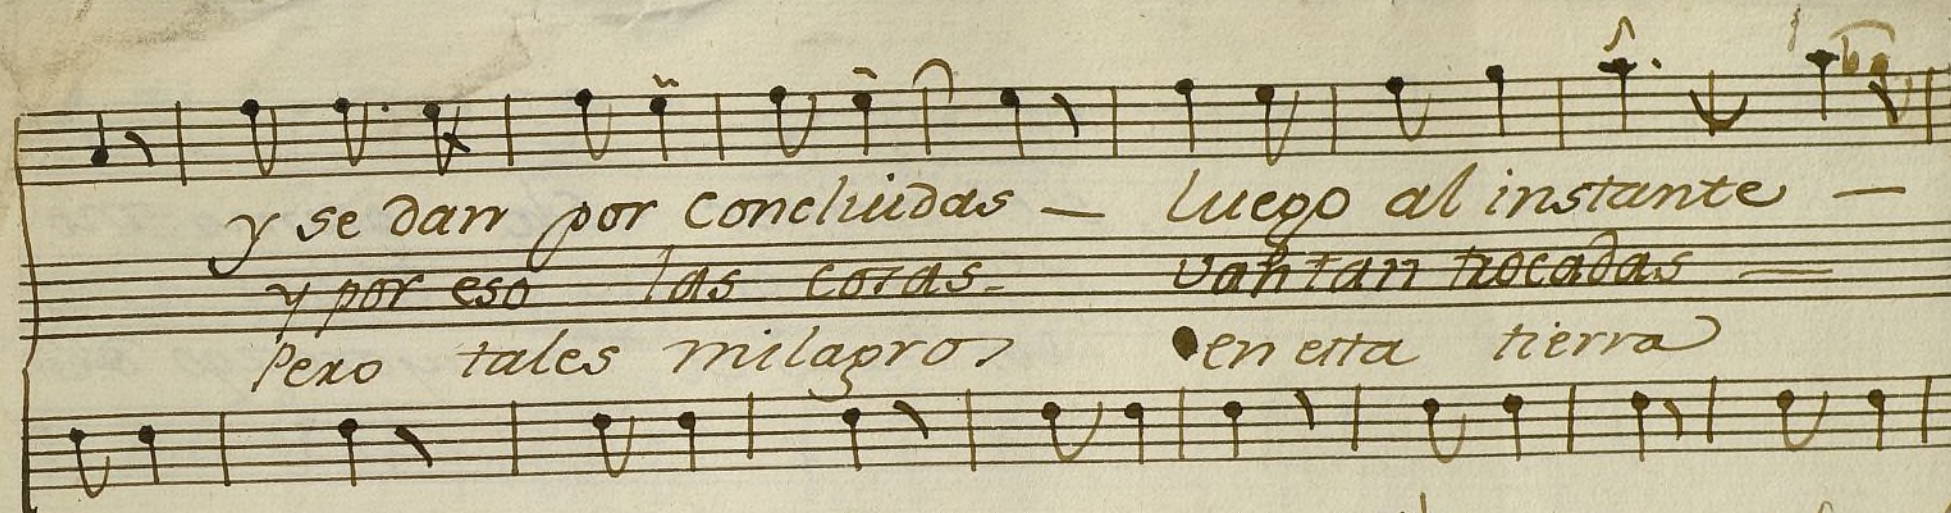 y se dan por concluidas — luego al instante —
y por eso las cosas - van tan trocadas —
Pero tales milagros en esta tierra